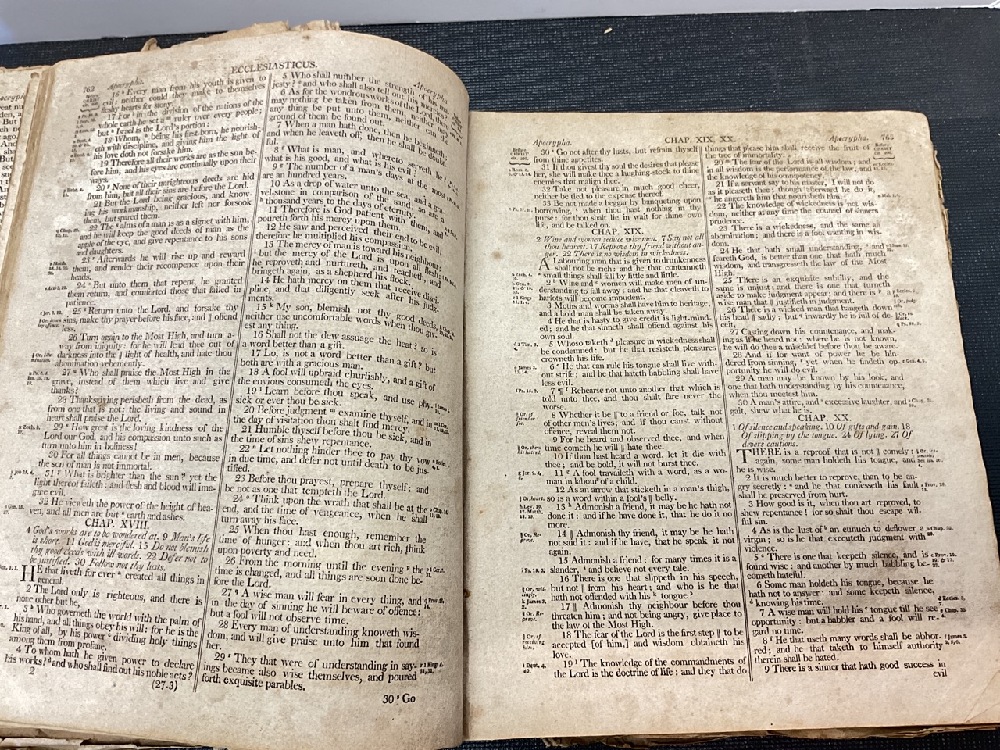 ECCLESIASTICUS.
762 Apocrypha.
Apocrypha.
16 Every man from his youth is given to
evil; neither could they make to themselves
fleshy hearts for stony.
17 For in the division of the nations of the
whole earth he set a ruler over every people;
but Israel is the Lord's portion:
18 Whom, being his first-born, he nourish-
eth with discipline, and giving him the light of
his love doth not forsake him.
19 Therefore all their works are as the sun be-
fore him, and his eyes are continually upon their
ways.
20 None of their unrighteous deeds are hid
from him, but all their sins are before the Lord.
21 But the Lord being gracious, and know-
ing his workmanship, neither left nor forsook
them, but spared them.
22 The alms of a man is as a signet with him,
and he will keep the good deeds of man as the
apple of the eye, and give repentance to his sons
and daughters.
23 Afterwards he will rise up and reward
them, and render their recompence upon their
heads.
24 But unto them that repent, he granted
them return, and comforted those that failed in
patience.
25 Return unto the Lord, and forsake thy
sins, make thy prayer before his face, and offend
less.
26 Turn again to the Most High, and turn a-
way from iniquity: for he will lead thee out of
darkness into the light of health, and hate thou
abomination vehemently.
27 Who shall praise the Most High in the
grave, instead of them which live and give
thanks?
28 Thanksgiving perisheth from the dead, as
from one that is not: the living and sound in
heart shall praise the Lord.
29 How great is the loving kindness of the
Lord our God, and his compassion unto such as
turn unto him in holiness!
30 For all things cannot be in men, because
the son of man is not immortal.
31 What is brighter than the sun? yet the
light thereof faileth: and flesh and blood will ima-
gine evil.
32 He vieweth the power of the height of hea-
ven, and all men are but earth and ashes.
CHAP. XVIII.
4 God's works are to be wondered at. 9 Man's life
is short. 11 God is merciful. 15 Do not blemish
thy good deeds with ill words. 22 Defer not to
be justified. 30 Follow not thy lusts.
HE that liveth for ever created all things in
general.
2 The Lord only is righteous, and there is
none other but he,
3 Who governeth the world with the palm of
his hand, and all things obey his will; for he is the
King of all, by his power dividing holy things
among them from profane.
4 To whom hath he given power to declare
his works? and who shall find out his noble acts?
2
(27-3)
5 Who shall number the strength of his ma-
jesty? and who shall also tell out his mercies?
6 As for the wondrous works of the Lord, there
may nothing be taken from them, neither may
any thing be put unto them, neither can the
ground of them be found out.
7 When a man hath done, then he beginneth;
and when he leaveth off, then he shall be doubtful.
8 What is man, and whereto serveth he?
what is his good, and what is his evil?
9 The number of a man's days at the most
are an hundred years.
10 As a drop of water unto the sea, and a gra-
velstone in comparison of the sand, so are a
thousand years to the days of eternity.
11 Therefore is God patient with them, and
poureth forth his mercy upon them.
12 He saw and perceived their end to be evil,
therefore he multiplied his compassion.
13 The mercy of man is toward his neighbour;
but the mercy of the Lord is upon all flesh:
he reproveth and nurtureth, and teacheth, and
bringeth again, as a shepherd his flock.
14 He hath mercy on them that receive disci-
pline, and that diligently seek after his judg-
ments.
15 My son, blemish not thy good deeds,
neither use uncomfortable words when thou giv-
est any thing.
16 Shall not the dew assuage the heat? so is
a word better than a gift.
17 Lo, is not a word better than a gift? but
both are with a gracious man.
18 A fool will upbraid churlishly, and a gift of
the envious consumeth the eyes.
19 Learn before thou speak, and use phy-
sick or ever thou be sick.
20 Before judgment examine thyself, and in
the day of visitation thou shalt find mercy.
21 Humble thyself before thou be sick, and in
the time of sins shew repentance.
22 Let nothing hinder thee to pay thy vow
in due time, and defer not until death to be jus-
tified.
23 Before thou prayest, prepare thyself; and
be not as one that tempteth the Lord.
24 Think upon the wrath that shall be at the
end, and the time of vengeance, when he shall
turn away his face.
25 When thou hast enough, remember the
time of hunger: and when thou art rich, think
upon poverty and need.
26 From the morning until the evening the
time is changed, and all things are soon done be-
fore the Lord.
27 A wise man will fear in every thing, and
in the day of sinning he will beware of offence:
but a fool will not observe time.
28 Every man of understanding knoweth wis-
dom, and will give praise unto him that found
her.
29 They that were of understanding in say-
ings became also wise themselves, and poured
forth exquisite parables.
30 Go
Apocrypha.
CHAP. XIX, XX.
Apocrypha.
763
30 Go not after thy lusts, but refrain thyself
from thine appetites.
31 If thou givest thy soul the desires that please
her, she will make thee a laughing-stock to thine
enemies that malign thee.
32 Take not pleasure in much good cheer,
neither be tied to the expence thereof.
33 Be not made a beggar by banqueting upon
borrowing, when thou hast nothing in thy
purse: for thou shalt lie in wait for thine own
life, and be talked on.
CHAP. XIX.
2 Wine and women seduce wise men. 7 Say not all
thou hearest. 17 Reprove thy friend without an-
ger. 22 There is no wisdom in wickedness.
A Labouring man that is given to drunkenness
shall not be rich: and he that contemneth
small things shall fall by little and little.
2 Wine and women will make men of un-
derstanding to fall away: and he that cleaveth to
harlots will become impudent.
3 Moths and worms shall have him to heritage,
and a bold man shall be taken away.
4 He that is hasty to give credit is light-mind-
ed; and he that sinneth shall offend against his
own soul.
5 Whoso taketh pleasure in wickedness shall
be condemned: but he that resisteth pleasures
crowneth his life.
6 He that can rule his tongue shall live with-
out strife; and he that hateth babbling shall have
less evil.
7 Rehearse not unto another that which is
told unto thee, and thou shalt fare never the
worse.
8 Whether it be to a friend or foe, talk not
of other men's lives; and if thou canst without
offence, reveal them not.
9 For he heard and observed thee, and when
time cometh he will hate thee.
10 If thou hast heard a word, let it die with
thee; and be bold, it will not burst thee.
11 A fool travaileth with a word, as a wo-
man in labour of a child.
12 As an arrow that sticketh in a man's thigh,
so is a word within a fool's belly.
13 Admonish a friend, it may be he hath not
done it: and if he have done it, that he do it no
more.
14 Admonish thy friend, it may be he hath
not said it: and if he have, that he speak it not
again.
15 Admonish a friend: for many times it is a
slander, and believe not every tale.
16 There is one that slippeth in his speech,
but not from his heart; and who is he that
hath not offended with his tongue?
17 Admonish thy neighbour before thou
threaten him; and not being angry, give place to
the law of the Most High.
18 The fear of the Lord is the first step to be
accepted [of him,] and wisdom obtaineth his
love.
19 The knowledge of the commandments of
the Lord is the doctrine of life: and they that do
things that please him shall receive the fruit of
the tree of immortality.
20 The fear of the Lord is all wisdom; and
in all wisdom is the performance of the law, and
the knowledge of his omnipotency.
21 If a servant say to his master, I will not do
as it pleaseth thee; though afterward he do it,
he angereth him that nourisheth him.
22 The knowledge of wickedness is not wis-
dom, neither at any time the counsel of sinners
prudence.
23 There is a wickedness, and the same an
abomination; and there is a fool wanting in wis-
dom.
24 He that hath small understanding, and
feareth God, is better than one that hath much
wisdom, and transgresseth the law of the Most
High.
25 There is an exquisite subtilty, and the
same is unjust; and there is one that turneth
aside to make judgment appear; and there is a
wise man that justifieth in judgment.
26 There is a wicked man that hangeth down
his head sadly; but inwardly he is full of de-
ceit,
27 Casting down his countenance, and mak-
ing as if he heard not: where he is not known,
he will do thee a mischief before thou be aware.
28 And if for want of power he be hin-
dered from sinning, yet when he findeth op-
portunity he will do evil.
29 A man may be known by his look, and
one that hath understanding by his countenance,
when thou meetest him.
30 A man's attire, and excessive laughter, and
gait, shew what he is.
CHAP. XX.
1 Of silence and speaking. 10 Of gifts and gain. 18
Of slipping by the tongue. 24 Of lying. 27 Of
divers cautions.
THERE is a reproof that is not comely:
again, some man holdeth his tongue, and
he is wise.
2 It is much better to reprove, than to be an-
gry secretly: and he that confesseth his fault
shall be preserved from hurt.
3 How good is it, when thou art reproved, to
shew repentance! for so shalt thou escape wil-
ful sin.
4 As is the lust of an eunuch to deflower a
virgin; so is he that executeth judgment with
violence.
5 There is one that keepeth silence, and is
found wise: and another by much babbling be-
cometh hateful.
6 Some man holdeth his tongue, because he
hath not to answer: and some keepeth silence,
knowing his time.
7 A wise man will hold his tongue till he see
opportunity: but a babbler and a fool will re-
gard no time.
8 He that useth many words shall be abhor-
red; and he that taketh to himself authority
therein shall be hated.
9 There is a sinner that hath good success in
evil